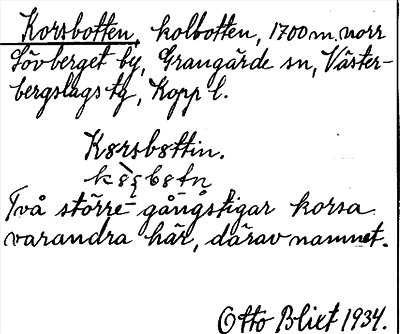 Korsbotten, kolbotten, 1700 m. norr
Lövberget by, Grangärde sn, Väster-
bergslags tg, Kopp l.
Kørsbøttin.
Två större gångstigar korsa
varandra här, därav namnet.
Otto Blixt 1934.